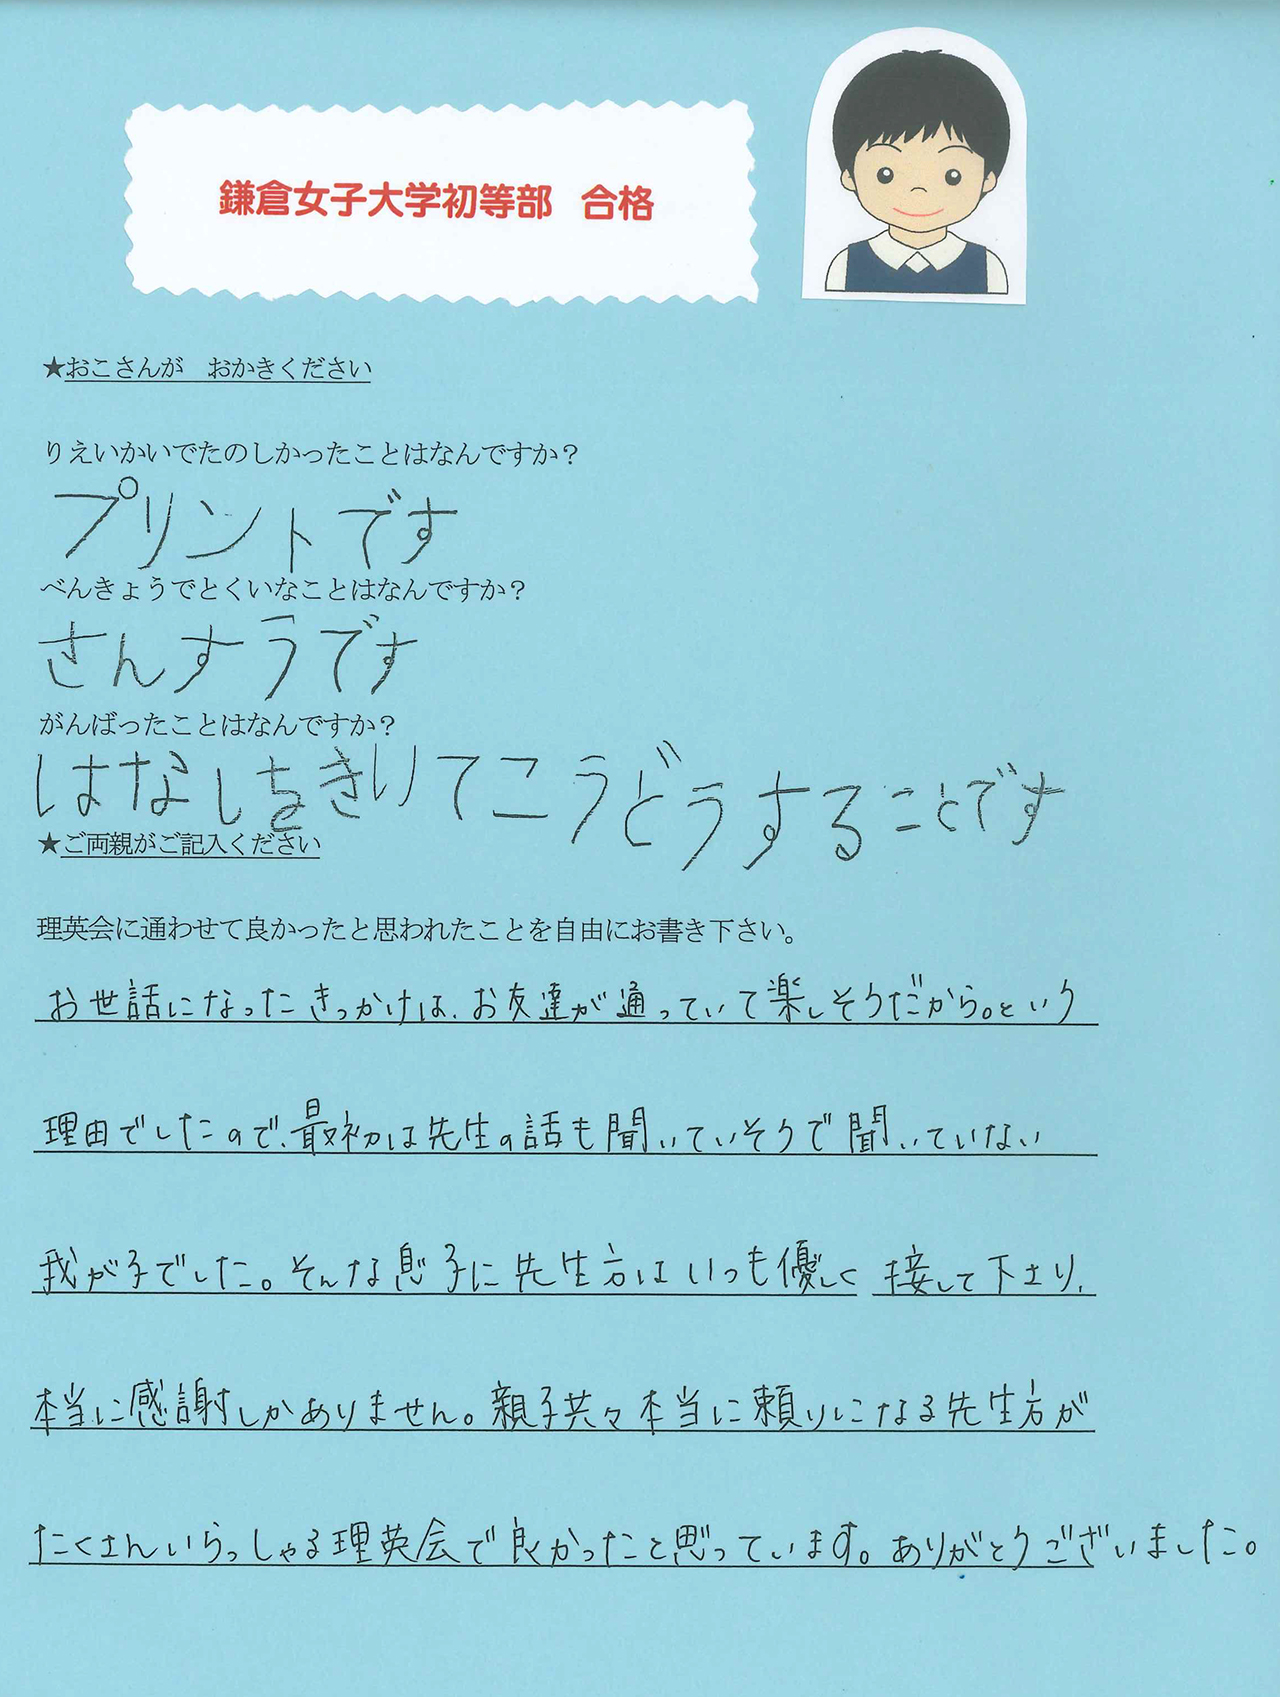 鎌倉女子大学初等部 合格
★おこさんが おかきください
りえいかいでたのしかったことはなんですか？
プリントです
べんきょうでとくいなことはなんですか？
さんすうです
がんばったことはなんですか？
はなしをきいてこうどうすることです
★ご両親がご記入ください
理英会に通わせて良かったと思われたことを自由にお書き下さい。
お世話になったきっかけは、お友達が通っていて楽しそうだから。という
理由でしたので、最初は先生の話も聞いていそうで聞いていない
我が子でした。そんな息子に先生方はいつも優しく接して下さり、
本当に感謝しかありません。親子共々本当に頼りになる先生方が
たくさんいらっしゃる理英会で良かったと思っています。ありがとうございました。